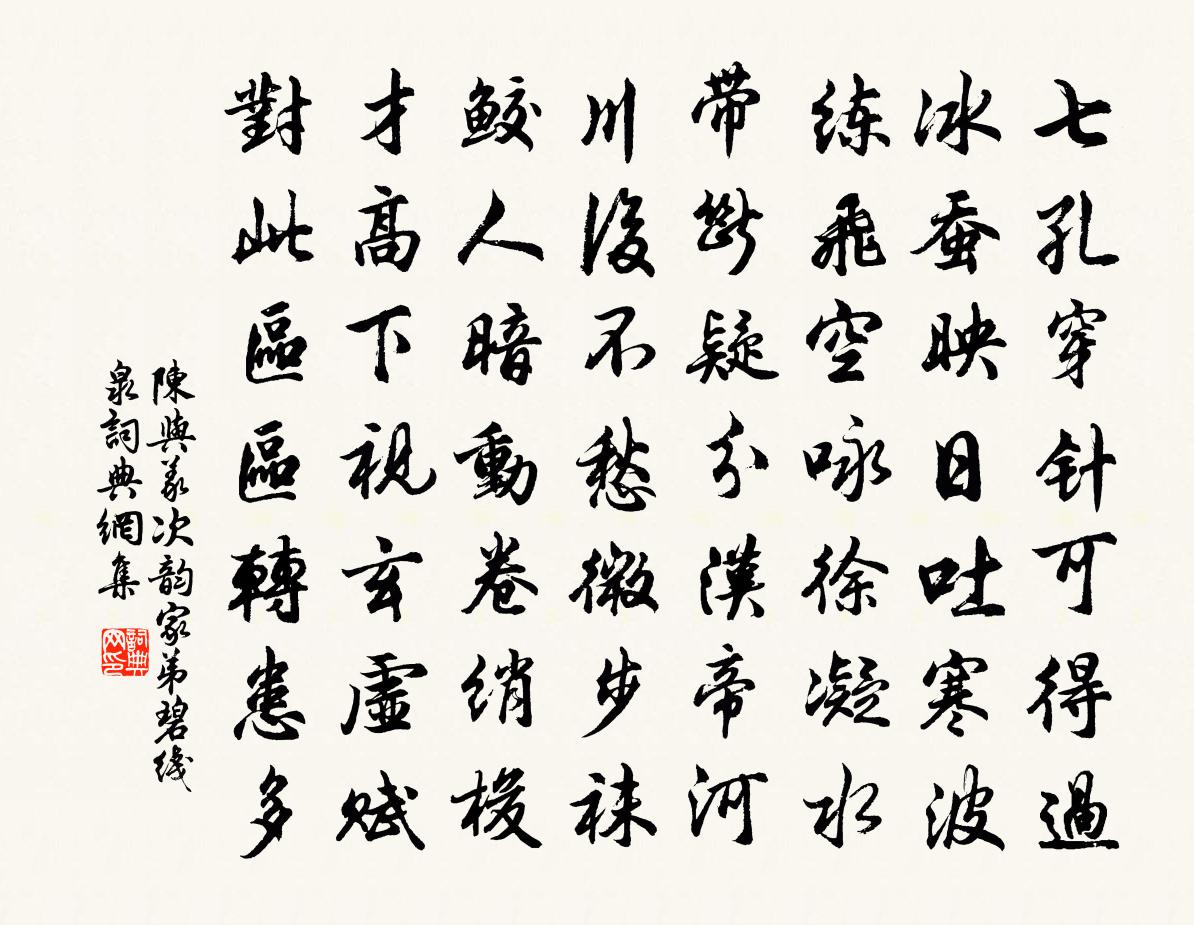 七孔穿针可得過
冰蚕映日吐寒波
练飛空咏徐凝水
带斷疑分漢帝河
川後不愁微步袜
鲛人暗動卷绡梭
才高下視玄虛赋
對此區區轉患多
陳與義次韵家弟碧线
泉詞典網集
詞典网印